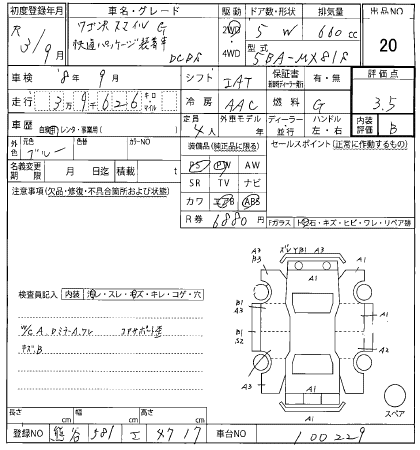 初度登録年月 車名・グレード 駆動 ドア数・形状 排気量 出品NO
R 3/9月 ワゴンRスマイル G 2WD 5 W 660cc 20
快適パッケージ装着車 4WD 型式
DCDA 5BA-MX81S
車検 8年9月 シフト IAT 保証書 有・無 評価点
走行 3万9626 キロ マイル 冷房 AAC 燃料 G 3.5
車歴 自家用 レンタ・事業用( ) 定員 4人 外車モデル 年 ディーラー 並行 ハンドル 左・右 内装評価 B
外色 元色 ブルー 色替 カラーNO 装備品(純正品に限る) セールスポイント(正常に動作するもの)
名義変更期限 月 日迄 積載 t PS PW AW
注意事項(欠品・修復・不具合箇所および状態) SR TV ナビ
カワ エアB ABS
R券 6880円
Fガラス 飛石・キズ・ヒビ・ワレ・リペア跡
A2 B3 ズレ Y B1 A3 A1
A1
検査員記入 内装 汚レ・スレ・キズ・キレ・コゲ・穴
B1 A3 A1
W/G A ロミナーA,ワレ コアサポート歪
キズB
B1 S2 A2
A3 A1 A1
A1
スペア
長さ cm 幅 cm 高さ cm
登録NO 熊谷 581 エ 4717 車台NO 100229